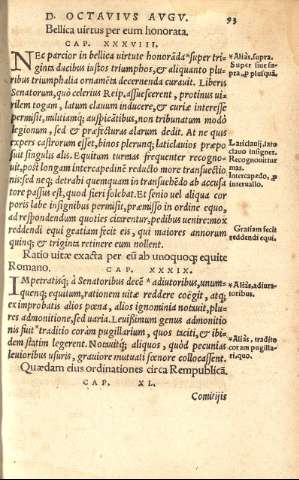 D. OCTAVIVS AVGV. 93
Bellica uirtus per eum honorata.
CAP. XXXVIII.
NEc parcior in bellica uirtute honorãda *super tri=
ginta ducibus iustos triumphos, & aliquanto plu
ribus triumphalia ornamẽta decernenda curauit. Liberis
Senatorum, quò celerius Reip. assuescerent, protinus ui=
rilem togam, latum clauum induere, & curiæ interesse
permisit, militiamq; auspicãtibus, non tribunatum modò
legionum, sed & præfecturas alarum dedit. At ne quis
expers castrorum esset, binos plerunq; laticlauios præpo
suit singulis alis. Equitum turmas frequenter recogno=
uit, post longam intercapedinẽ reducto more transuectio
nis: sed neq; detrahi quemquam in transuehẽdo ab accusa
tore passus est, quod fieri solebat. Et senio uel aliqua cor
poris labe insignibus permisit, præmisso in ordine equo,
ad respondendum quoties citarentur, pedibus uenire: mox
reddendi equi gratiam fecit eis, qui maiores annorum
quinq; & triginta retinere eum nollent.
Ratio uitæ exacta per eũ ab unoquoq; equite
Romano. CAP. XXXIX.
IMpetratisq; à Senatoribus decẽ *adiutoribus, unum=
quenq; equitum, rationem uitæ reddere coëgit, atq;
exprobratis alios pœna, alios ignominia notauit, plu=
res admonitione, sed uaria. Leuissimum genus admonitio
nis fuit *traditio corám pugillarium, quos taciti, & ibi=
dem statim legerent. Notauitq; aliquos, quòd pecunias
leuioribus usuris, grauiore mutuati fœnore collocassent.
Quædam eius ordinationes circa Rempublicã.
CAP. XL.
Comitijs
*Aliâs, supra.
Gratiam fecit
reddendi equi.
*Aliâs, adiuta
toribus.
*Aliâs, tradito